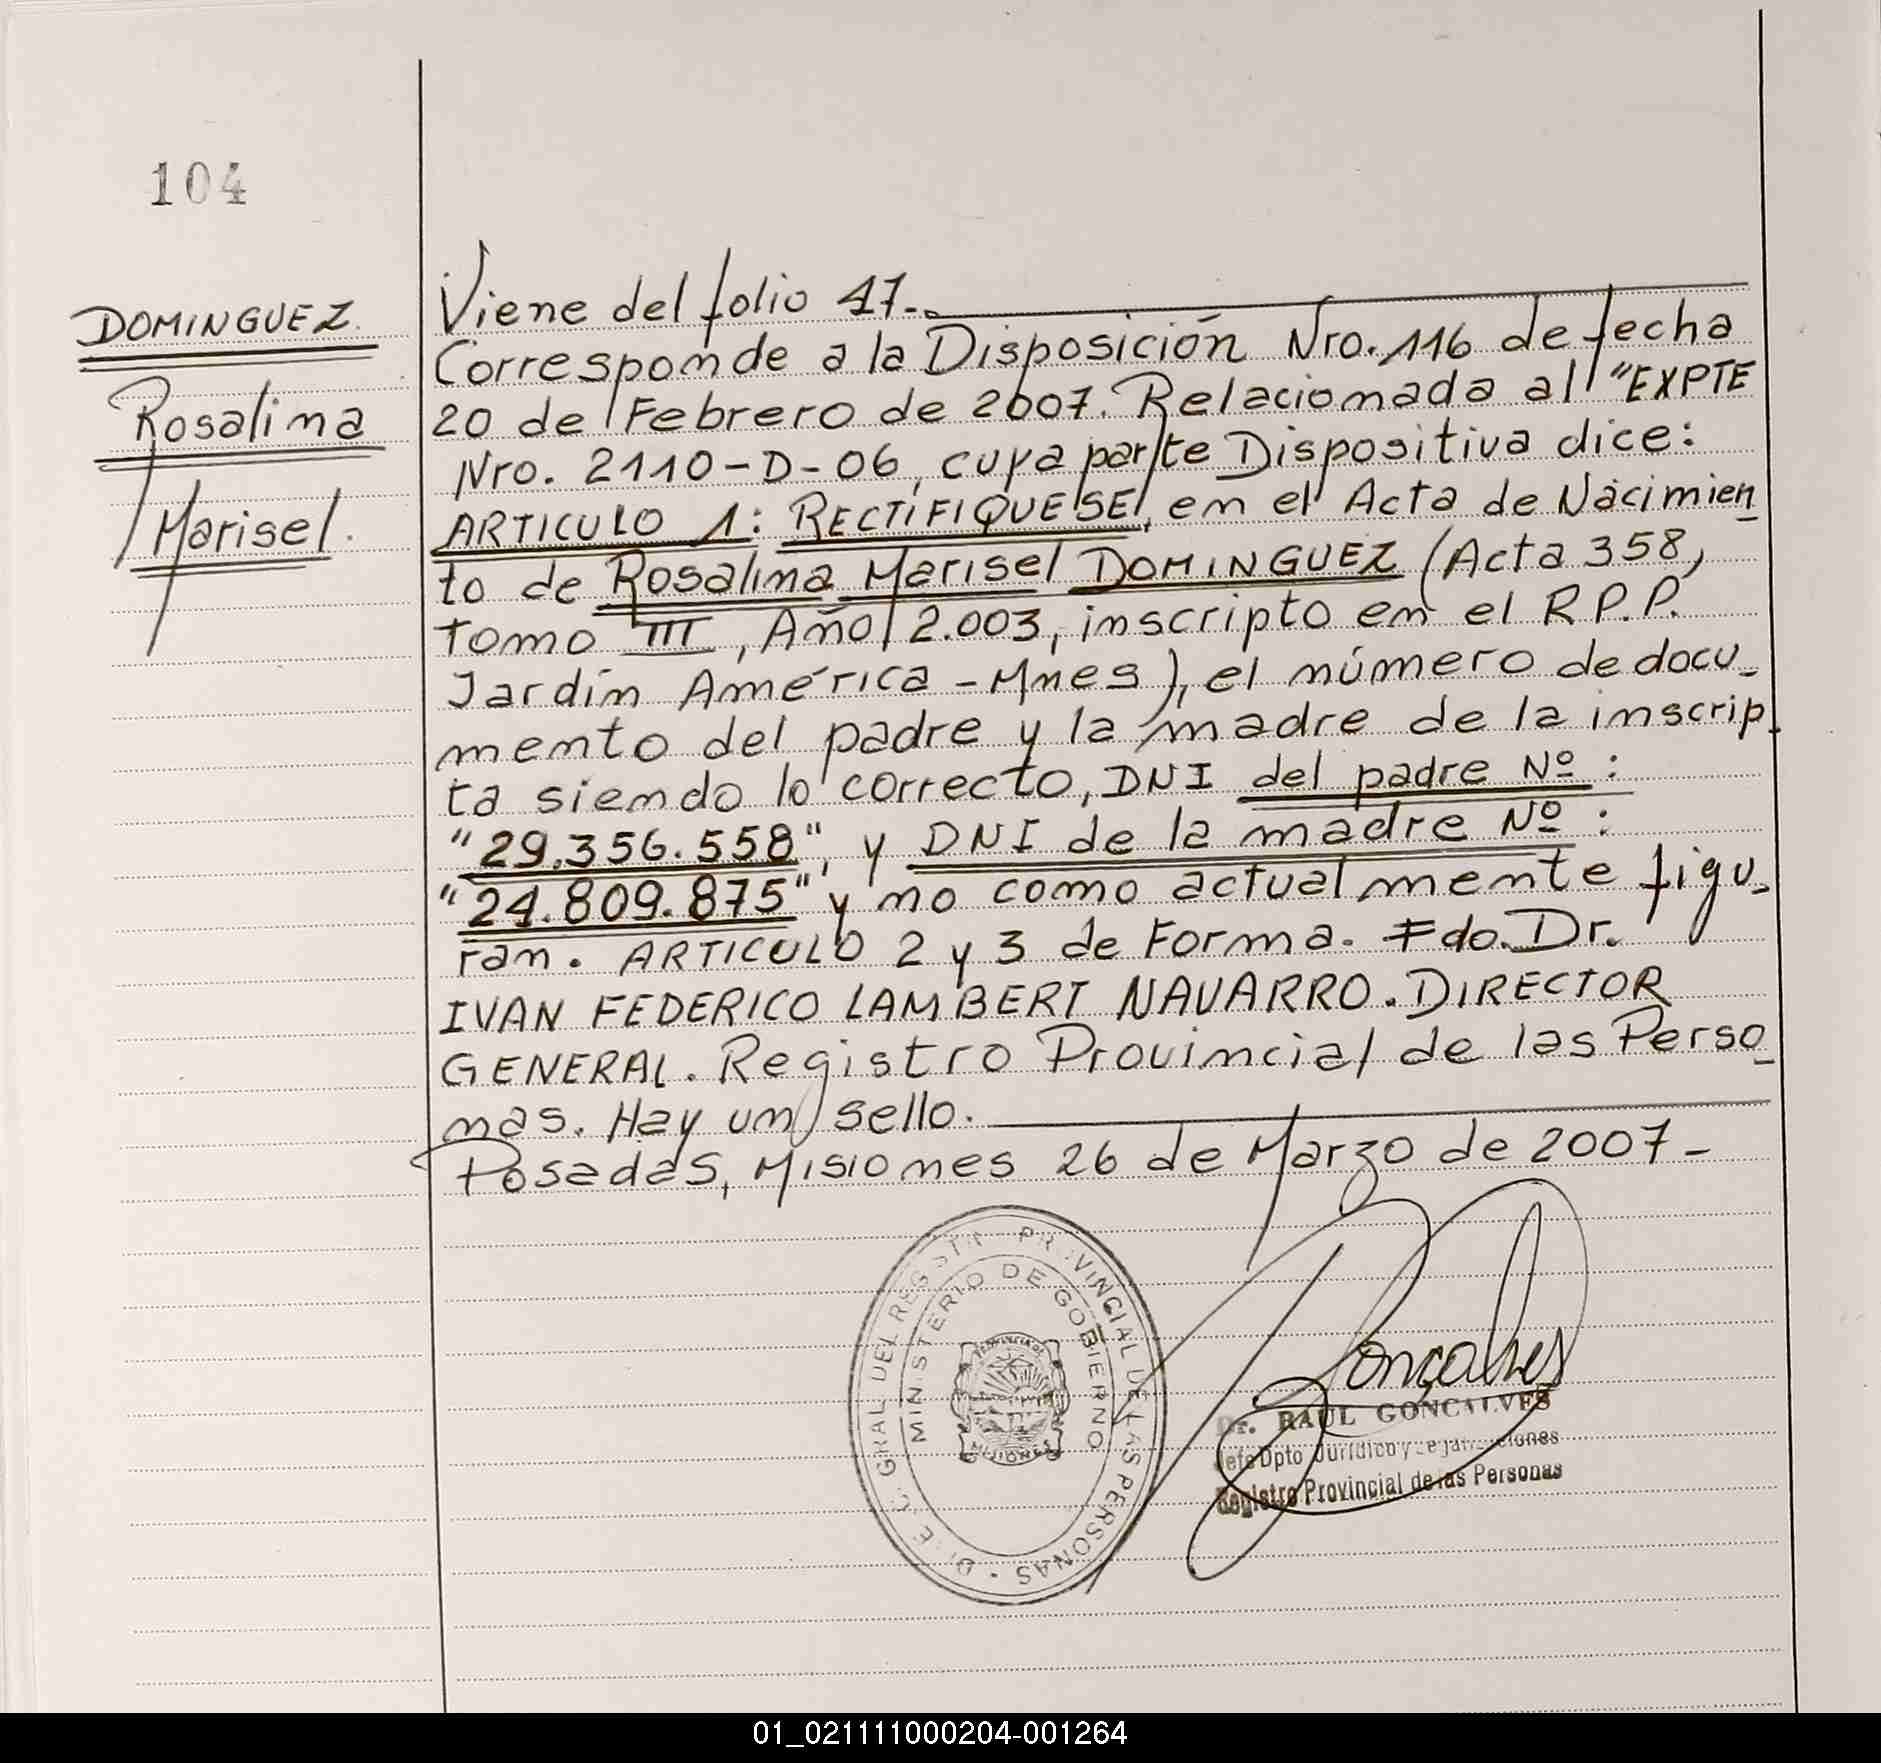 104
DOMINGUEZ
Rosalina
Marisel.
Viene del folio 47.-
Corresponde a la Disposición Nro. 116 de fecha
20 de Febrero de 2007. Relacionada al "EXPTE
Nro. 2110-D-06, cuya parte Dispositiva dice:
ARTICULO 1: RECTIFIQUESE, en el Acta de Nacimien
to de Rosalina Marisel DOMINGUEZ (Acta 358,
Tomo III, Año 2.003, inscripto en el R.P.P.
Jardín América - Mnes), el número de docu-
mento del padre y la madre de la inscrip-
ta siendo lo correcto, DNI del padre Nº:
"29.356.558", y DNI de la madre Nº:
"24.809.875" y no como actualmente figu-
ran. ARTICULO 2 y 3 de Forma. Fdo. Dr.
IVAN FEDERICO LAMBERT NAVARRO. DIRECTOR
GENERAL. Registro Provincial de las Perso-
nas. Hay un sello.
Posadas, Misiones 26 de Marzo de 2007-
PROVINCIAL DE LAS PERSONAS
GRAL DEL
MINISTERIO DE GOBIERNO
MISIONES
Gonçalves
Dr. RAUL GONÇALVES
Jefe Dpto Jurídico y
Registro Provincial de las Personas
01_021111000204-001264